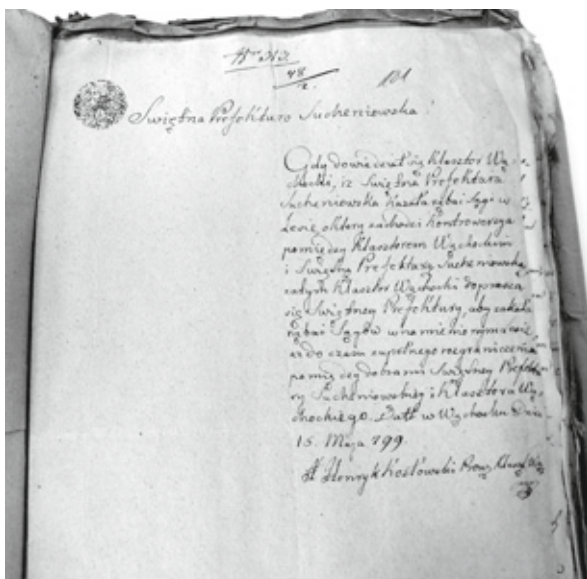 Nro 313.
48
121
Swiętna Prefekturo Sucheniowska!
Gdy dowiedział się Klasztor Wą-
chocki, iż Swiętna Prefektura
Sucheniowska kazała rąbać Sągi w
Lesie, o który zachodzi kontrowersya
pomiędzy Klasztorem Wąchockim
i Swiętną Prefekturą Sucheniowską
Klasztor Wąchocki doprasza
się Swiętney Prefektury, aby
rąbać Sągów w namienionym
aż do czasu zupełnego rozgraniczenia
pomiędzy dobrami Swiętney Prefektu-
ry Sucheniowskiey i Klasztora Wą-
chockiego. Datt w Wąchocku Dnia
15. Maja 799.
Henryk Kozłowski